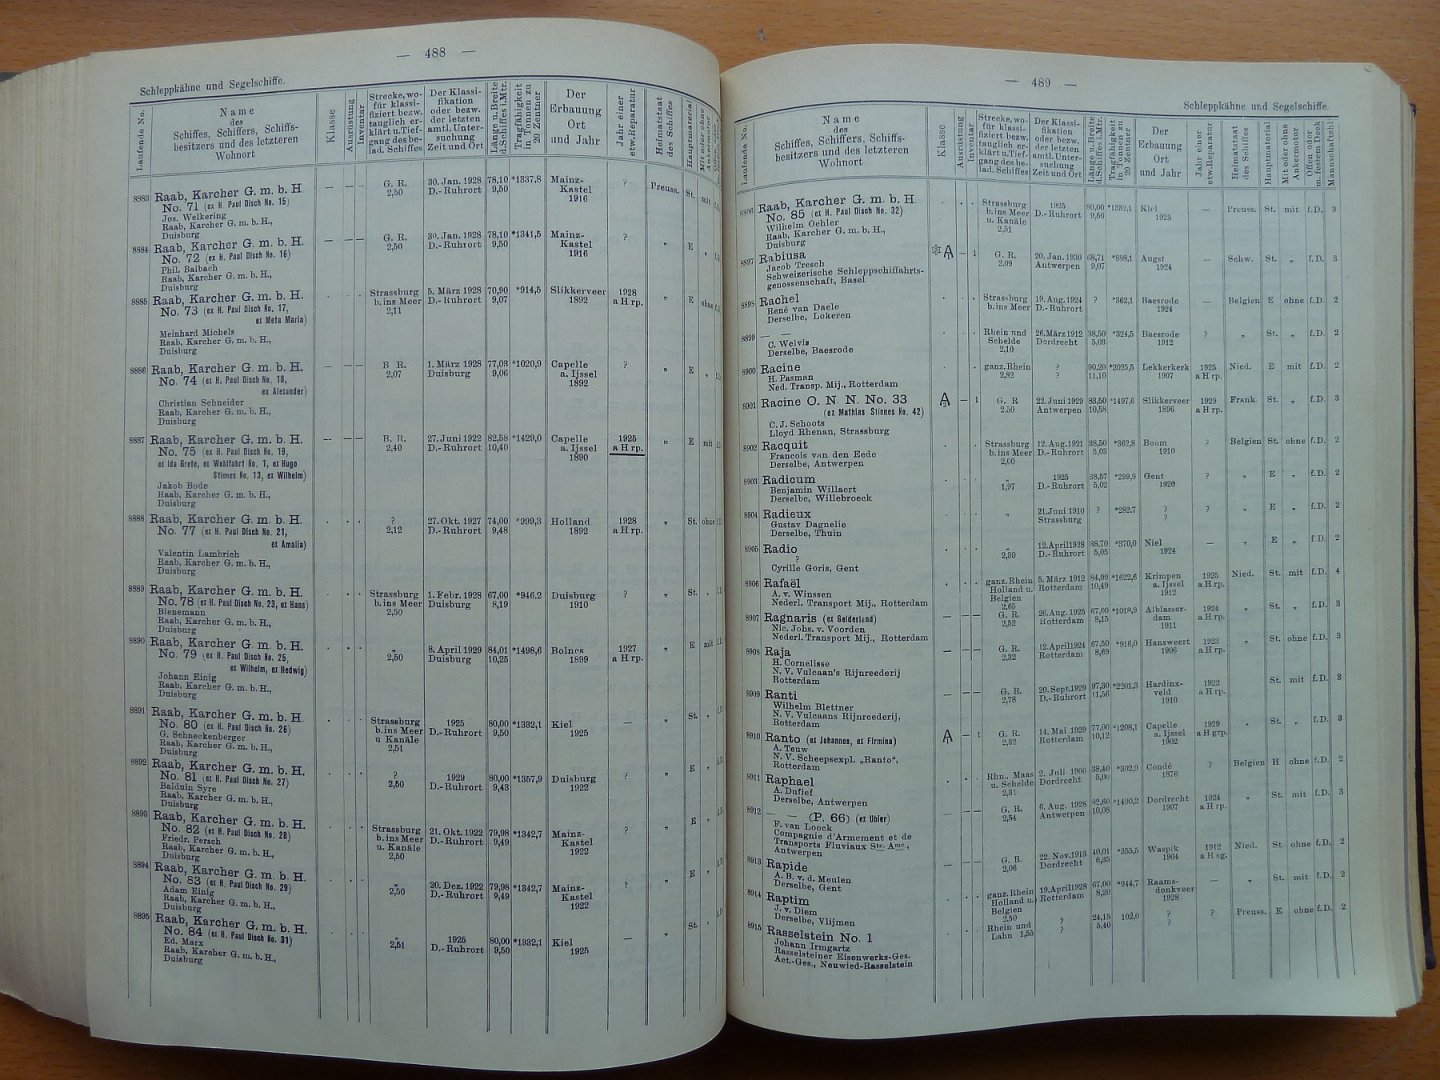 — 488 —
Schleppkähne und Segelschiffe.
Laufende No.
Name
des
Schiffes, Schiffers, Schiffs-
besitzers und des letzteren
Wohnort
Klasse
Ausrüstung
Inventar
Strecke, wo-
für klassi-
fiziert bezw.
tauglich er-
klärt u.Tief-
gang des be-
lad. Schiffes
Der Klassi-
fikation
oder bezw.
der letzten
amtl. Unter-
suchung
Zeit und Ort
Länge u. Breite
d.Schiffes i.Mtr.
Tragfähigkeit
in Tonnen zu
20 Zentner
Der
Erbauung
Ort
und Jahr
Jahr einer
etw.Reparatur
Heimatstaat
des Schiffes
Hauptmaterial
8883 Raab, Karcher G. m. b. H. — — — G. R. 30. Jan. 1928 78,10 *1337,8 Mainz- ? Preuss. St. mit
No. 71 (ex H. Paul Disch No. 15) 2,50 D.-Ruhrort 9,50 Kastel
Jos. Welkering 1916
Raab, Karcher G. m. b. H.,
Duisburg
8884 Raab, Karcher G. m. b. H. — — — G. R. 30. Jan. 1928 78,10 *1341,5 Mainz- ? „ E „
No. 72 (ex H. Paul Disch No. 16) 2,50 D.-Ruhrort 9,50 Kastel
Phil. Balbach 1916
Raab, Karcher G. m. b. H.,
Duisburg
8885 Raab, Karcher G. m. b. H. Strassburg 5. März 1928 70,90 *914,5 Slikkerveer 1928 „ E ohne
No. 73 (ex H. Paul Disch No. 17, b. ins Meer D.-Ruhrort 9,07 1892 a H rp.
ex Meta Maria) 2,11
Meinhard Michels
Raab, Karcher G. m. b. H.,
Duisburg
8886 Raab, Karcher G. m. b. H. — — — B R. 1. März 1928 77,03 *1020,9 Capelle ? „ E „
No. 74 (ex H. Paul Disch No. 18, 2,07 Duisburg 9,06 a. Ijssel
ex Alexander) 1892
Christian Schneider
Raab, Karcher G. m. b. H.,
Duisburg
8887 Raab, Karcher G. m. b. H. — — — B. R. 27. Juni 1922 82,58 *1429,0 Capelle 1925 „ E mit
No. 75 (ex H. Paul Disch No. 19, 2,40 D.-Ruhrort 10,40 a. Ijssel a H rp.
ex Ida Grete, ex Wohlfahrt No. 1, ex Hugo 1890
Stinnes No. 13, ex Wilhelm)
Jakob Bode
Raab, Karcher G. m. b. H.,
Duisburg
8888 Raab, Karcher G. m. b. H. ? 27. Okt. 1927 74,00 *999,3 Holland 1928 „ St. ohne
No. 77 (ex H. Paul Disch No. 21, 2,12 D.-Ruhrort 9,48 1892 a H rp.
ex Amalia)
Valentin Lambrich
Raab, Karcher G. m. b. H.,
Duisburg
8889 Raab, Karcher G. m. b. H. Strassburg 1. Febr. 1928 67,00 *946,2 Duisburg ? „ St. „
No. 78 (ex H. Paul Disch No. 23, ex Hans) b. ins Meer Duisburg 8,19 1910
Bienemann 2,50
Raab, Karcher G. m. b. H.,
Duisburg
8890 Raab, Karcher G. m. b. H. „ 8. April 1929 84,01 *1498,6 Bolnes 1927 „ E mit
No. 79 (ex H. Paul Disch No. 25, 2,50 Duisburg 10,25 1899 a H rp.
ex Wilhelm, ex Hedwig)
Johann Einig
Raab, Karcher G. m. b. H.,
Duisburg
8891 Raab, Karcher G. m. b. H. Strassburg 1925 80,00 *1332,1 Kiel — „ St. „
No. 80 (ex H. Paul Disch No. 26) b. ins Meer D.-Ruhrort 9,50 1925
G. Schneckenberger u Kanäle
Raab, Karcher G. m. b. H., 2,51
Duisburg
8892 Raab, Karcher G. m. b. H. ? 1929 80,00 *1357,9 Duisburg ? „ E „
No. 81 (ex H. Paul Disch No. 27) 2,50 D.-Ruhrort 9,43 1922
Balduin Syre
Raab, Karcher G. m. b. H.,
Duisburg
8893 Raab, Karcher G. m. b. H. Strassburg 21. Okt. 1922 79,98 *1342,7 Mainz- ? „ E „
No. 82 (ex H. Paul Disch No. 28) b. ins Meer D.-Ruhrort 9,49 Kastel
Friedr. Persch u. Kanäle 1922
Raab, Karcher G. m. b. H., 2,50
Duisburg
8894 Raab, Karcher G. m. b. H. „ 20. Dez. 1922 79,98 *1342,7 Mainz- ? „ E „
No. 83 (ex H. Paul Disch No. 29) 2,50 D.-Ruhrort 9,49 Kastel
Adam Einig 1922
Raab, Karcher G. m. b. H.,
Duisburg
8895 Raab, Karcher G. m. b. H. „ 1925 80,00 *1332,1 Kiel — „ St. „
No. 84 (ex H. Paul Disch No. 31) 2,51 D.-Ruhrort 9,50 1925
Ed. Marx
Raab, Karcher G. m. b. H.,
Duisburg
— 489 —
Schleppkähne und Segelschiffe.
Laufende No.
Name
des
Schiffes, Schiffers, Schiffs-
besitzers und des letzteren
Wohnort
Klasse
Ausrüstung
Inventar
Strecke, wo-
für klassi-
fiziert bezw.
tauglich er-
klärt u.Tief-
gang des be-
lad. Schiffes
Der Klassi-
fikation
oder bezw.
der letzten
amtl. Unter-
suchung
Zeit und Ort
Länge u. Breite
d.Schiffes i.Mtr.
Tragfähigkeit
in Tonnen zu
20 Zentner
Der
Erbauung
Ort
und Jahr
Jahr einer
etw.Reparatur
Heimatstaat
des Schiffes
Hauptmaterial
Mit oder ohne
Ankermotor
Offen oder
m. festem Deck
Mannschaftszahl
8896 Raab, Karcher G. m. b. H Strassburg 1925 80,00 *1332,1 Kiel — Preuss. St. mit f.D. 3
No. 85 (ex H. Paul Disch No. 32) b. ins Meer D.-Ruhrort 9,50 1925
Wilhelm Oehler u. Kanäle
Raab, Karcher G. m. b. H., 2,51
Duisburg
8897 Rabiusa A — 1 G. R. 20. Jan. 1930 68,71 *888,1 Augst — Schw. St. „ f.D. 3
Jacob Tresch 2,09 Antwerpen 9,07 1924
Schweizerische Schleppschiffahrts-
genossenschaft, Basel
8898 Rachel Strassburg 19. Aug. 1924 ? *362,1 Baesrode — Belgien E ohne f.D. 2
René van Daele b. ins Meer D.-Ruhrort 1924
Derselbe, Lokeren
8899 — — Rhein und 26. März 1912 38,50 *324,5 Baesrode ? „ St. „ f.D. 2
C. Welvis Schelde Dordrecht 5,03 1912
Derselbe, Baesrode 2,10
8900 Racine ganz. Rhein ? 90,20 *2025,5 Lekkerkerk 1925 Nied. E mit f.D. 2
H. Pasman 2,82 ? 11,10 1907 a H rp.
Ned. Transp. Mij., Rotterdam
8901 Racine O. N. N. No. 33 A — 1 G. R 22. Juni 1929 83,50 *1497,6 Slikkerveer 1929 Frank. St. „ f.D. 3
(ex Mathias Stinnes No. 42) 2,50 Antwerpen 10,58 1896 a H rp.
C. J. Schoots
Lloyd Rhenan, Strassburg
8902 Racquit Strassburg 12. Aug. 1921 38,50 *362,8 Boom ? Belgien St. ohne f.D. 2
Francois van den Eede b. ins Meer D.-Ruhrort 5,03 1910
Derselbe, Antwerpen 2,00
8903 Radicum „ 1925 38,57 *299,9 Gent ? „ E „ f.D. 2
Benjamin Willaert 1,97 D.-Ruhrort 5,02 1920
Derselbe, Willebroeck
8904 Radieux „ 21. Juni 1910 ? *282,7 ? ? „ E „ f.D. 2
Gustav Dagnelie Strassburg ?
Derselbe, Thuin
8905 Radio „ 12. April 1928 38,70 *370,0 Niel — „ E „ f D. 2
? 2,30 D.-Ruhrort 5,05 1924
Cyrille Goris, Gent
8906 Rafaël ganz. Rhein 5. März 1912 84,99 *1622,6 Krimpen 1925 Nied. St. mit f.D. 4
A. v. Winssen Holland u. Rotterdam 10,49 a. Ijssel a H rp.
Nederl. Transport Mij., Rotterdam Belgien 1912
2,65
8907 Ragnaris (ex Gelderland) — — G. R. 26. Aug. 1925 67,00 *1018,9 Alblasser- 1924 „ St. „ f.D. 3
Nic. Johs. v. Voorden 2,52 Rotterdam 8,15 dam a H rp.
Nederl. Transport Mij., Rotterdam 1911
8908 Raja — — G. R. 12. April 1924 67,50 *916,0 Hansweert 1923 „ St. ohne f.D. 3
H. Cornelisse 2,32 Rotterdam 8,69 1906 a H rp.
N. V. Vulcaan's Rijnreederij
Rotterdam
8909 Ranti — — G. R. 20. Sept. 1929 97,30 *2201,3 Hardinx- 1922 „ St. mit f.D. 3
Wilhelm Blettner 2,78 D.-Ruhrort 11,56 veld a H rp.
N. V. Vulcaans Rijnreederij, 1910
Rotterdam
8910 Ranto (ex Johannes, ex Firmina) A — 1 G. R. 14. Mai 1929 77,00 *1208,1 Capelle 1929 „ St. „ f.D. 3
A. Teuw 2,32 Rotterdam 10,12 a. Ijssel a H grp.
N. V. Scheepsexpl. „Ranto", 1902
Rotterdam
8911 Raphael Rhn., Maas 2. Juli 1906 38,40 *302,9 Condé ? Belgien H ohne f.D. 2
A. Dufief u. Schelde Dordrecht 5,00 1876
Derselbe, Antwerpen 2,31
8912 — — (P. 66) (ex Ubier) — — G. R. 6. Aug. 1928 82,60 *1490,2 Dordrecht 1924 „ St. mit f.D. 3
F. van Loock 2,54 Antwerpen 10,08 1907 a H rp.
Compagnie d'Armement et de
Transports Fluviaux Ste. Ame.,
Antwerpen
8913 Rapide G. R. 22. Nov. 1913 40,01 *355,5 Waspik 1912 Nied. St. ohne f.D. 2
A. B. v. d. Meulen 2,06 Dordrecht 6,35 1904 a H sg.
Derselbe, Gent
8914 Raptim ganz. Rhein 19. April 1928 67,00 *944,7 Raams- — „ St. mit f.D. 2
J. v. Diem Holland u. Rotterdam 8,20 donkveer
Derselbe, Vlijmen Belgien 1928
2,50
8915 Rasselstein No. 1 Rhein und ? 24,15 102,0 ? ? Preuss. E ohne f.D. 2
Johann Irmgartz Lahn 1,55 ? 5,40 ?
Rasselsteiner Eisenwerks-Ges.
Act.-Ges., Neuwied-Rasselstein